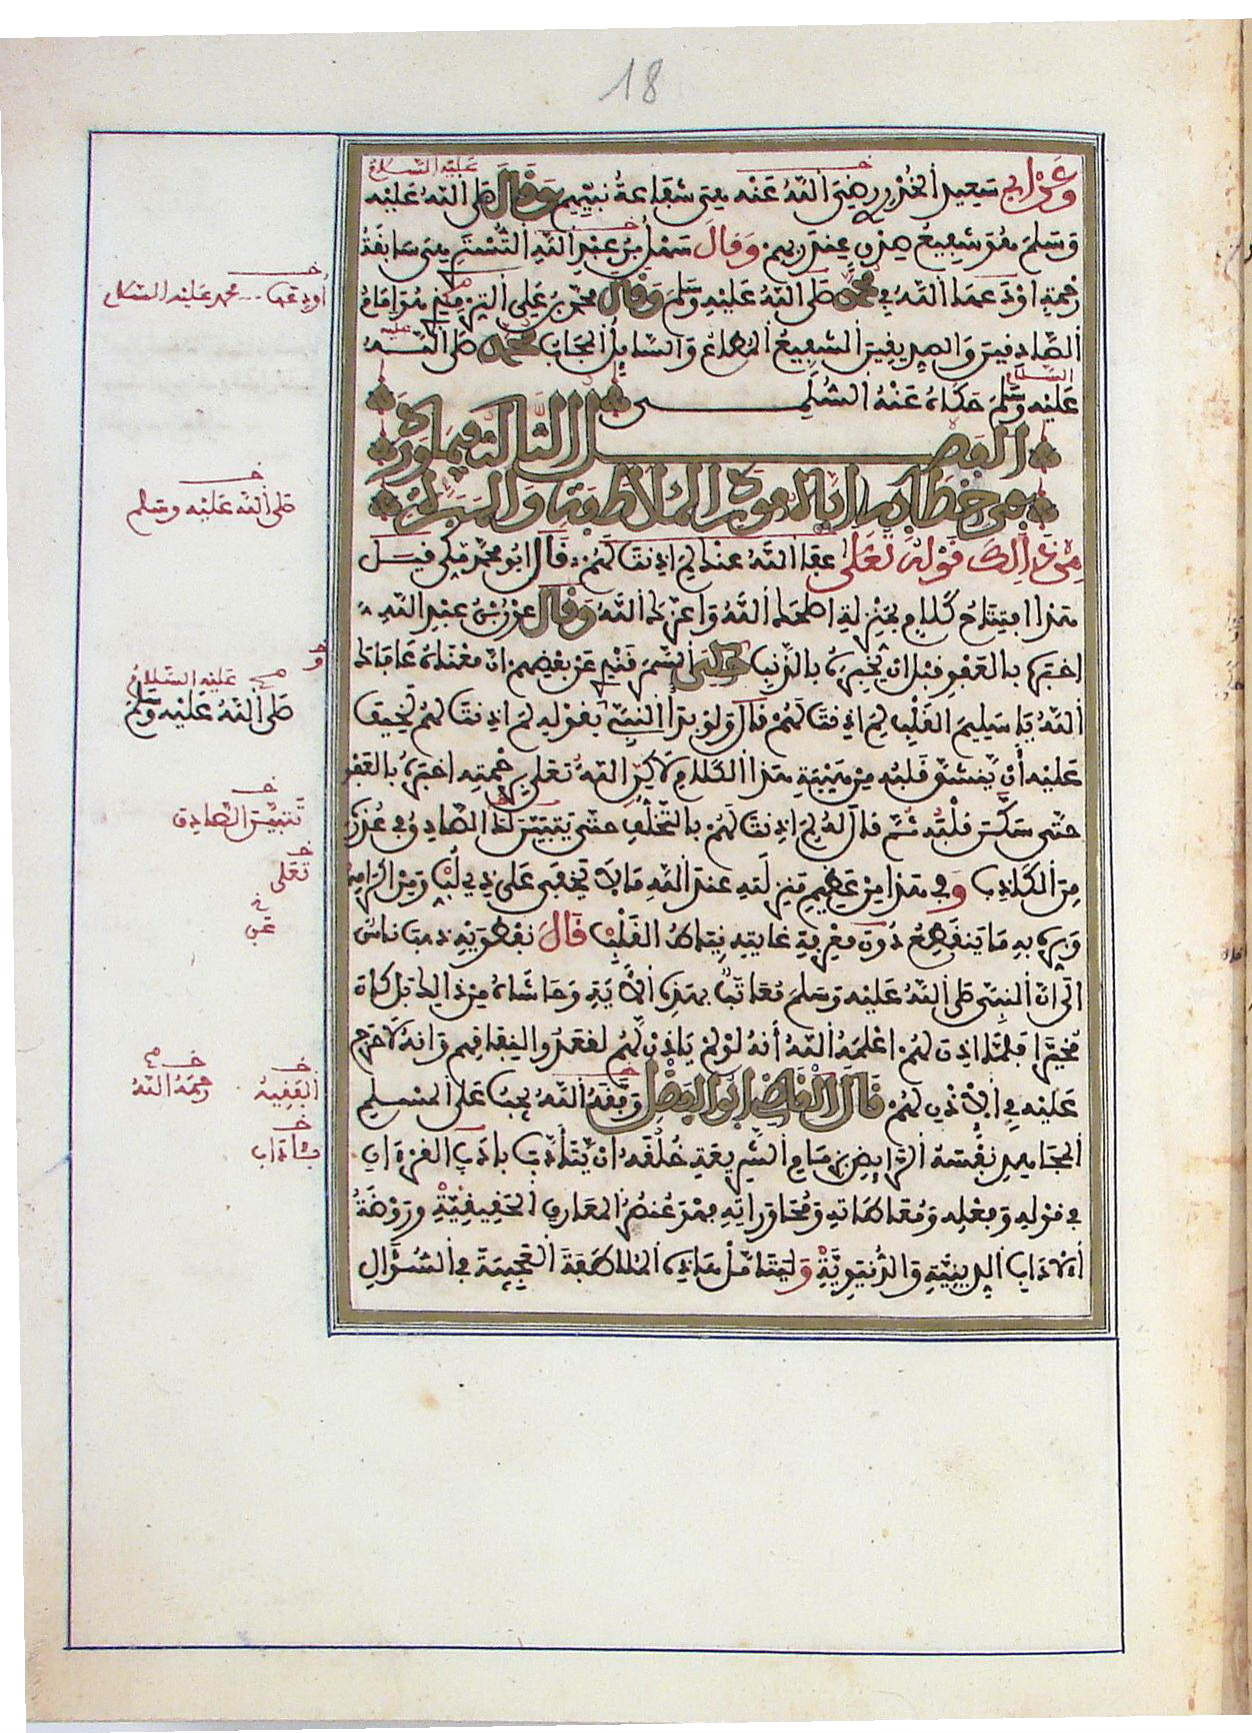 18
وعن أبي سعيد الخدري رضي الله عنه هي شفاعة نبيهم وقال صلى الله عليه
عليه السلام
وسلم هو شفيع صدق عند ربهم وقال سهل بن عبد الله التستري هي سابقة
رحمة اودعها الله في محمد صلى الله عليه وسلم وقال محمد بن علي الترمذي هو امام
الصادقين والصديقين الشفيع المطاع والسايل المجاب محمد صلى الله
عليه السلام
عليه وسلم حكاه عنه السلمي
الفصل الثالث فيما ورد
من خطابه اياه مورد الملاطفة والمبرة
من ذلك قوله تعلى عفا الله عنك لم اذنت لهم قال ابو محمد مكي قيل
هذا افتتاح كلام بمنزلة اصلحك الله واعزك الله وقال عون بن عبد الله
اخبره بالعفو قبل ان يخبره بالذنب حكى السمرقندي عن بعضهم ان معناه عافاك
الله يا سليم القلب لم اذنت لهم قال ولو بدأ النبي بقوله لم اذنت لهم لخيف
عليه أن ينشق قلبه من هيبة هذا الكلام لاكن الله تعلى برحمته اخبره بالعفو
حتى سكن قلبه ثم قال له لم اذنت لهم بالتخلف حتى يتبين لك الصادق في عذره
من الكاذب وفي هذا من عظيم منزلته عند الله ما لا يخفى على ذي لب ومن اكرامه
وبره به ما ينقطع دون معرفة غايته نياط القلب قال نفطويه ذهب ناس
الى ان النبي صلى الله عليه وسلم معاتب بهذه الأية وحاشاه من ذالك بل كان
مخيرا فلما اذن لهم اعلمه الله أنه لو لم ياذن لهم لقعدوا لنفاقهم وانه لا حرج
عليه في الأذن لهم قال القاضي ابو الفضل وفقه الله يجب على المسلم
المجاهد نفسه الرايض بزمام الشريعة خلقه ان يتأدب بادب القرءان
في قوله وفعله ومعاطاته ومحاوراته فهو عنصر المعارف الحقيقية وروضة
الأداب الدينية والدنيوية وليتأمل هاذه الملاطفة العجيبة في السؤال
أودعها ... محمد عليه السلام
صلى الله عليه وسلم
عليه السلام
صلى الله عليه وسلم
تتبين الصادق
تعلى
عن
الفقيه
رحمه الله
بئاداب